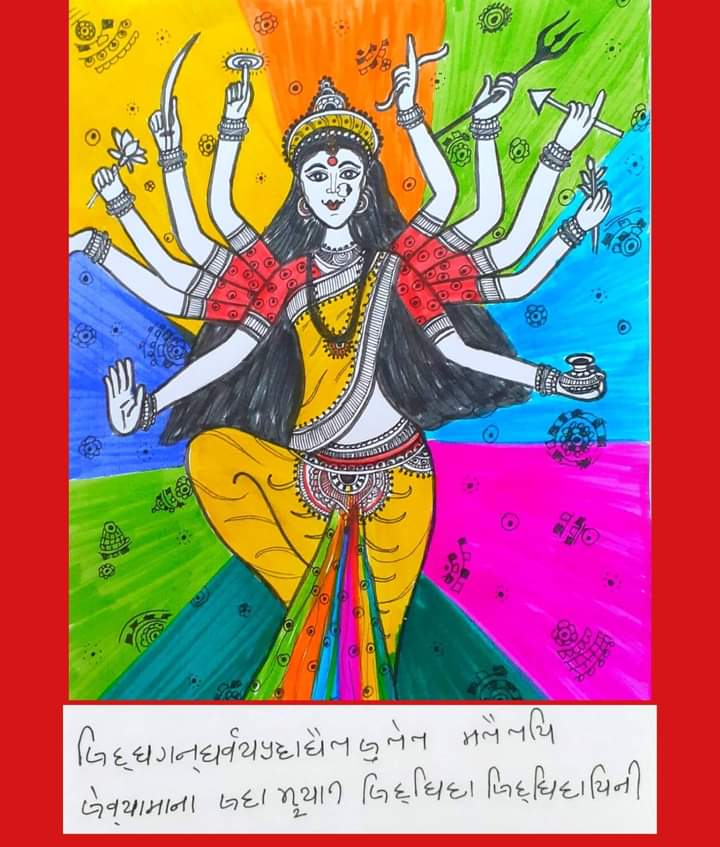 સિદ્ધગન્ધર્વયક્ષાદ્યૈરસુરેર મરૈરપિ
સેવ્યામાના સદા ભૂયાત સિદ્ધિદા સિદ્ધિદાયિની